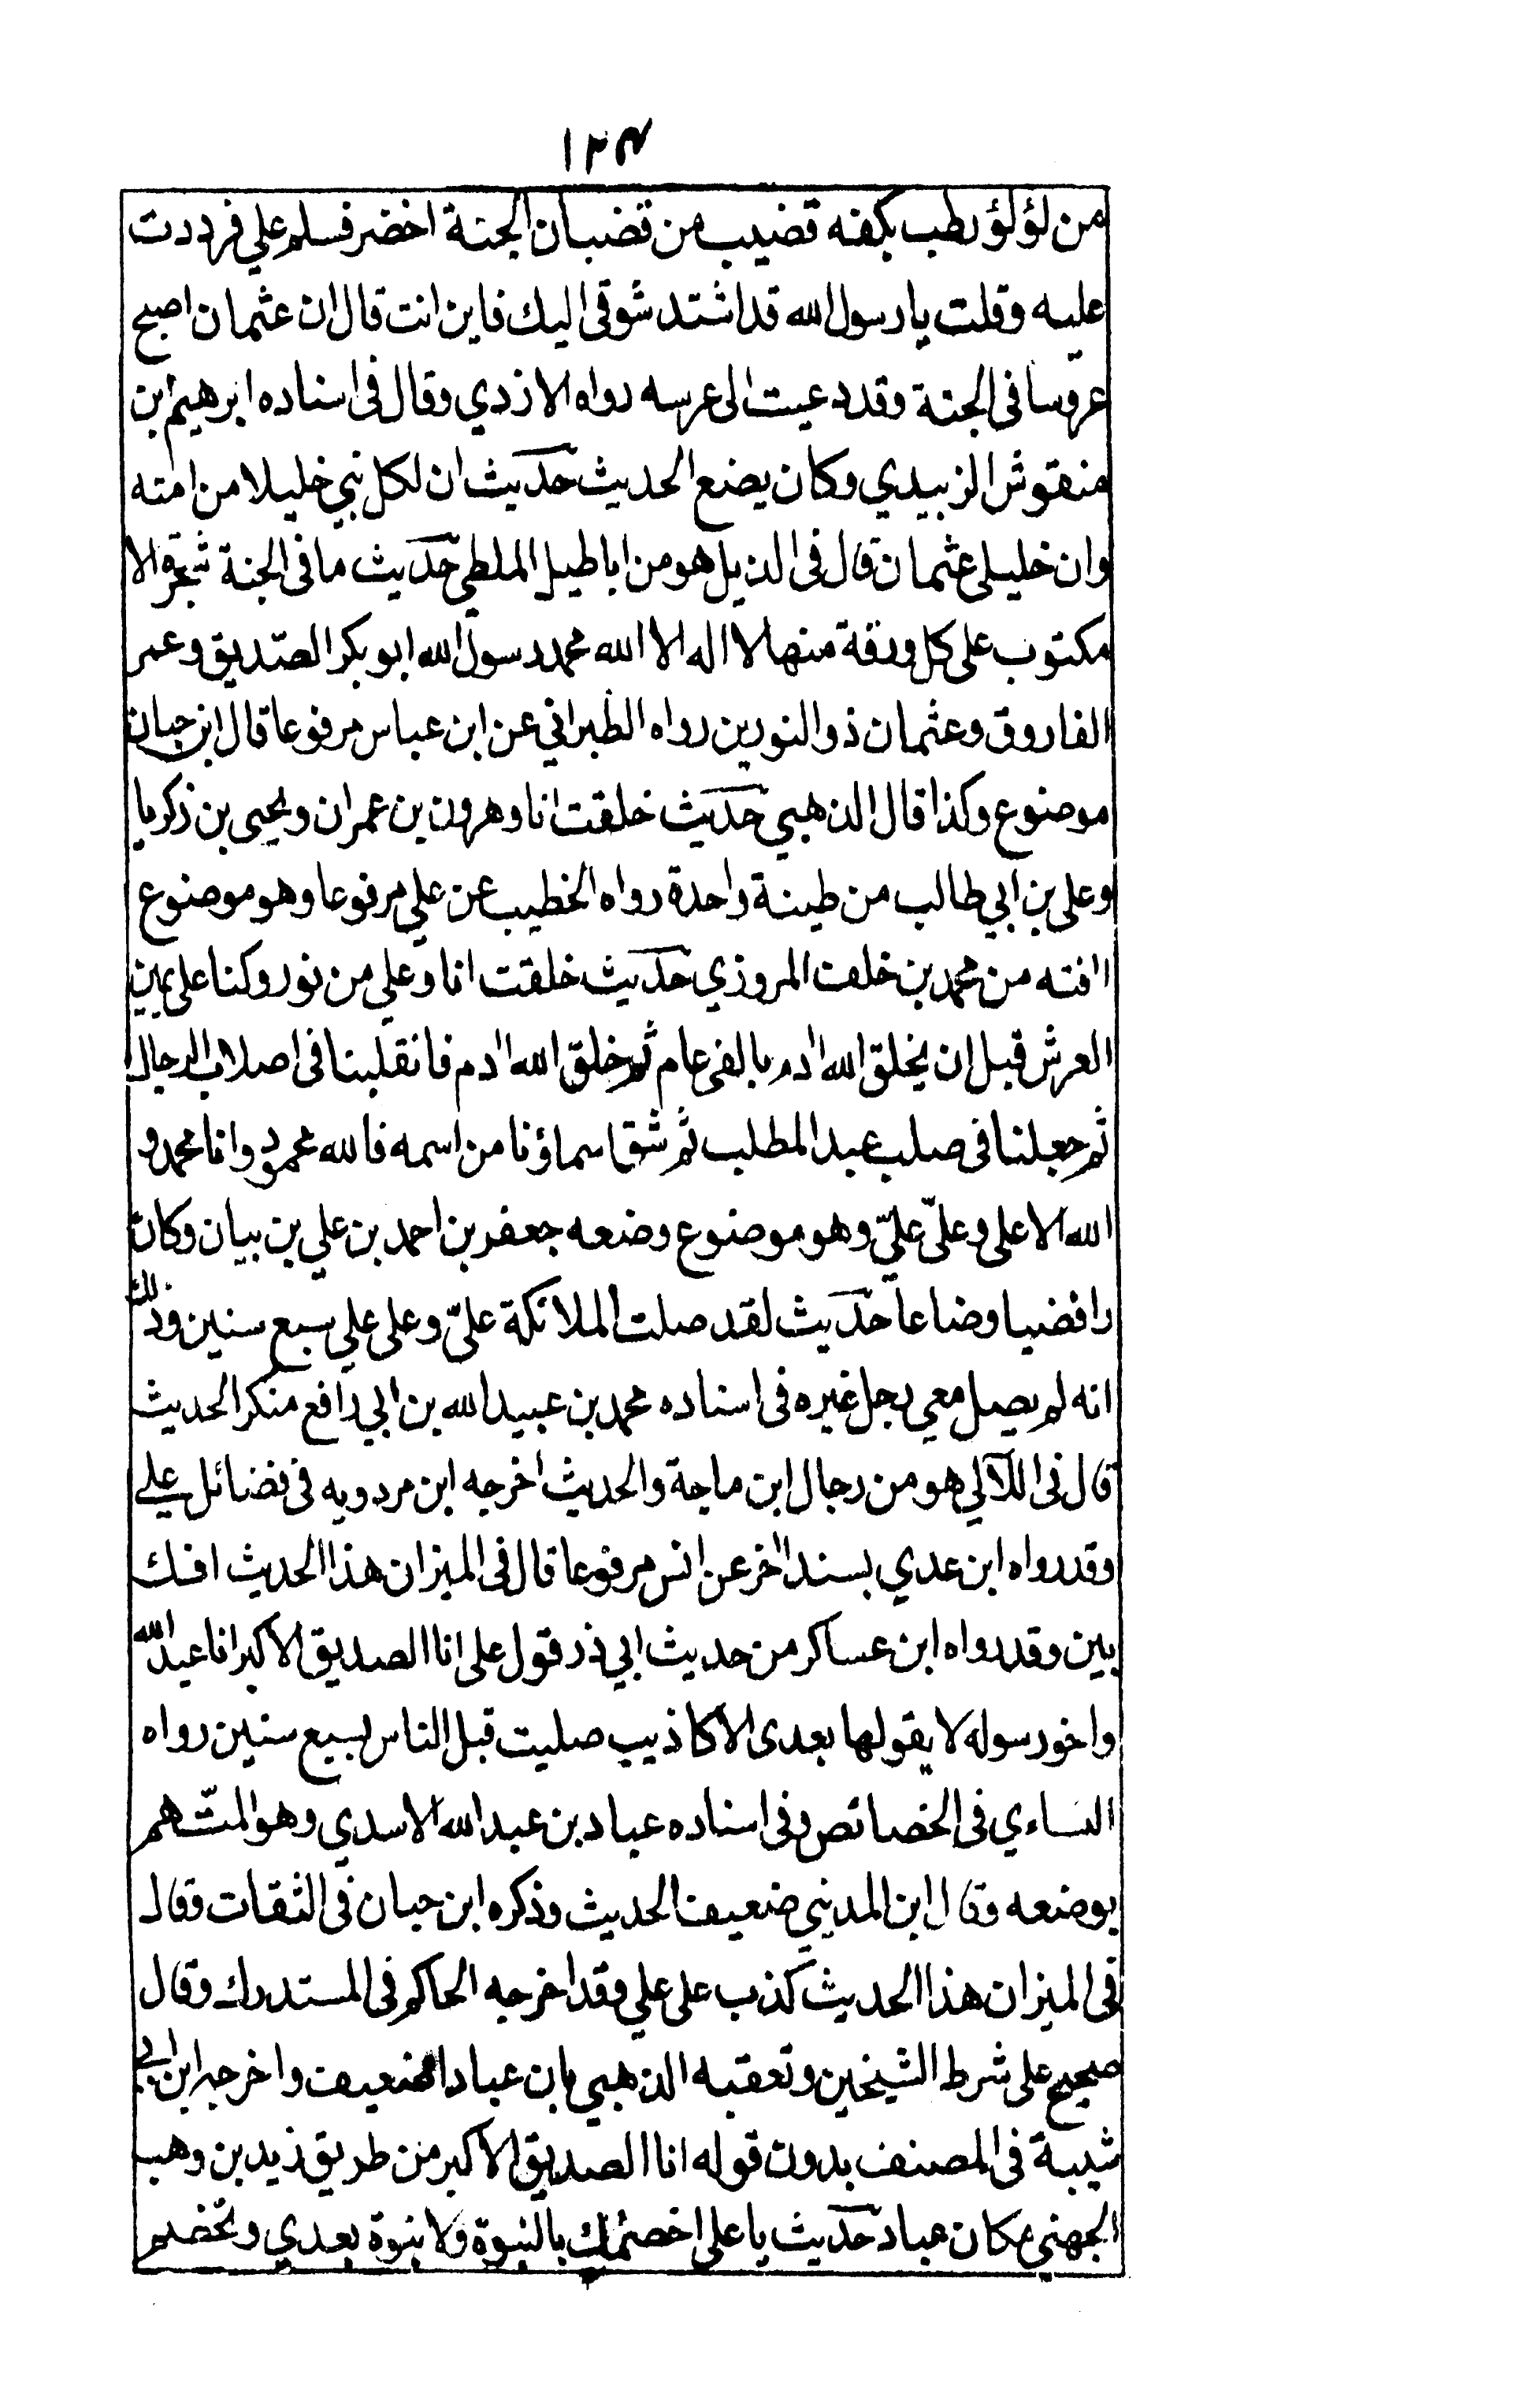 ١٢٤
من لؤلؤ رطب بكفه قضيب من قضبان الجنة اخضر فسلم علي فرددت
عليه وقلت يا رسول الله قد اشتد شوقى اليك فاين انت قال ان عثمان اصبح
عروسا فى الجنة وقد دعيت الى عرسه رواه الازدي وقال فى اسناده ابرهيم ابن
منقوش الزبيدي وكان يضع الحديث حديث ان لكل نبي خليلا من امته
وان خليلى عثمان قال فى الذيل هو من اباطيل الملطي حديث ما فى الجنة شجرة الا
مكتوب على كل ورقة منها لا اله الا الله محمد رسول الله ابو بكر الصّديق وعمر
الفاروق وعثمان ذو النورين رواه الطبراني عن ابن عباس مرفوعا قال ابن حبان
موضوع وكذا قال الذهبي حديث خلقت انا وهرون بن عمران ويحيى بن زكريا
وعلى بن ابي طالب من طينة واحدة رواه الخطيب عن علي مرفوعا وهو موضوع
اافته من محمد بن خلف المروزي حديث خلقت انا وعلي من نور وكنا على يمين
العرش قبل ان يخلق الله اادم بالفى عام ثم خلق الله اادم فانقلبنا فى اصلاب الرجال
ثم جعلنا فى صلب عبد المطلب ثم شق اسماؤنا من اسمه فالله محمود وانا محمد و
الله الاعلى وعلىّ عليّ وهو موضوع وضعه جعفر بن احمد بن علي بن بيان وكان
رافضيا وضاعا حديث لقد صلت الملائكة علىّ وعلى علي سبع سنين وذلك
انه لم يصل معي رجل غيره فى اسناده محمد بن عبيد الله بن ابي رافع منكر الحديث
قال فى اللآلي هو من رجال ابن ماجة والحديث اخرجه ابن مردويه فى فضائل علي
وقد رواه ابن عدي بسند ااخر عن انس مرفوعا قال فى الميزان هذا الحديث افك
بين وقد رواه ابن عساكر من حديث ابي ذر قول على انا الصديق الاكبر انا عبد الله
واخو رسوله لا يقولها بعدى الا كاذب صليت قبل الناس بسبع سنين رواه
النساءي فى الخصائص وفى اسناده عباد بن عبد الله الاسدي وهو المتّهم
بوضعه وقال ابن المديني ضعيف الحديث وذكره ابن حبان فى الثقات وقال
فى الميزان هذا الحديث كذب على علي وقد اخرجه الحاكم فى المستدرك وقال
صحيح على شرط الشيخين وتعقبه الذهبي بان عبادا ضعيف واخرجه ابن ابي
شيبة فى المصنف بدون قوله انا الصديق الاكبر من طريق زيد بن وهب
الجهني مكان عباد حديث يا على اخصمك بالنبوة ولا نبوة بعدي وتخصم